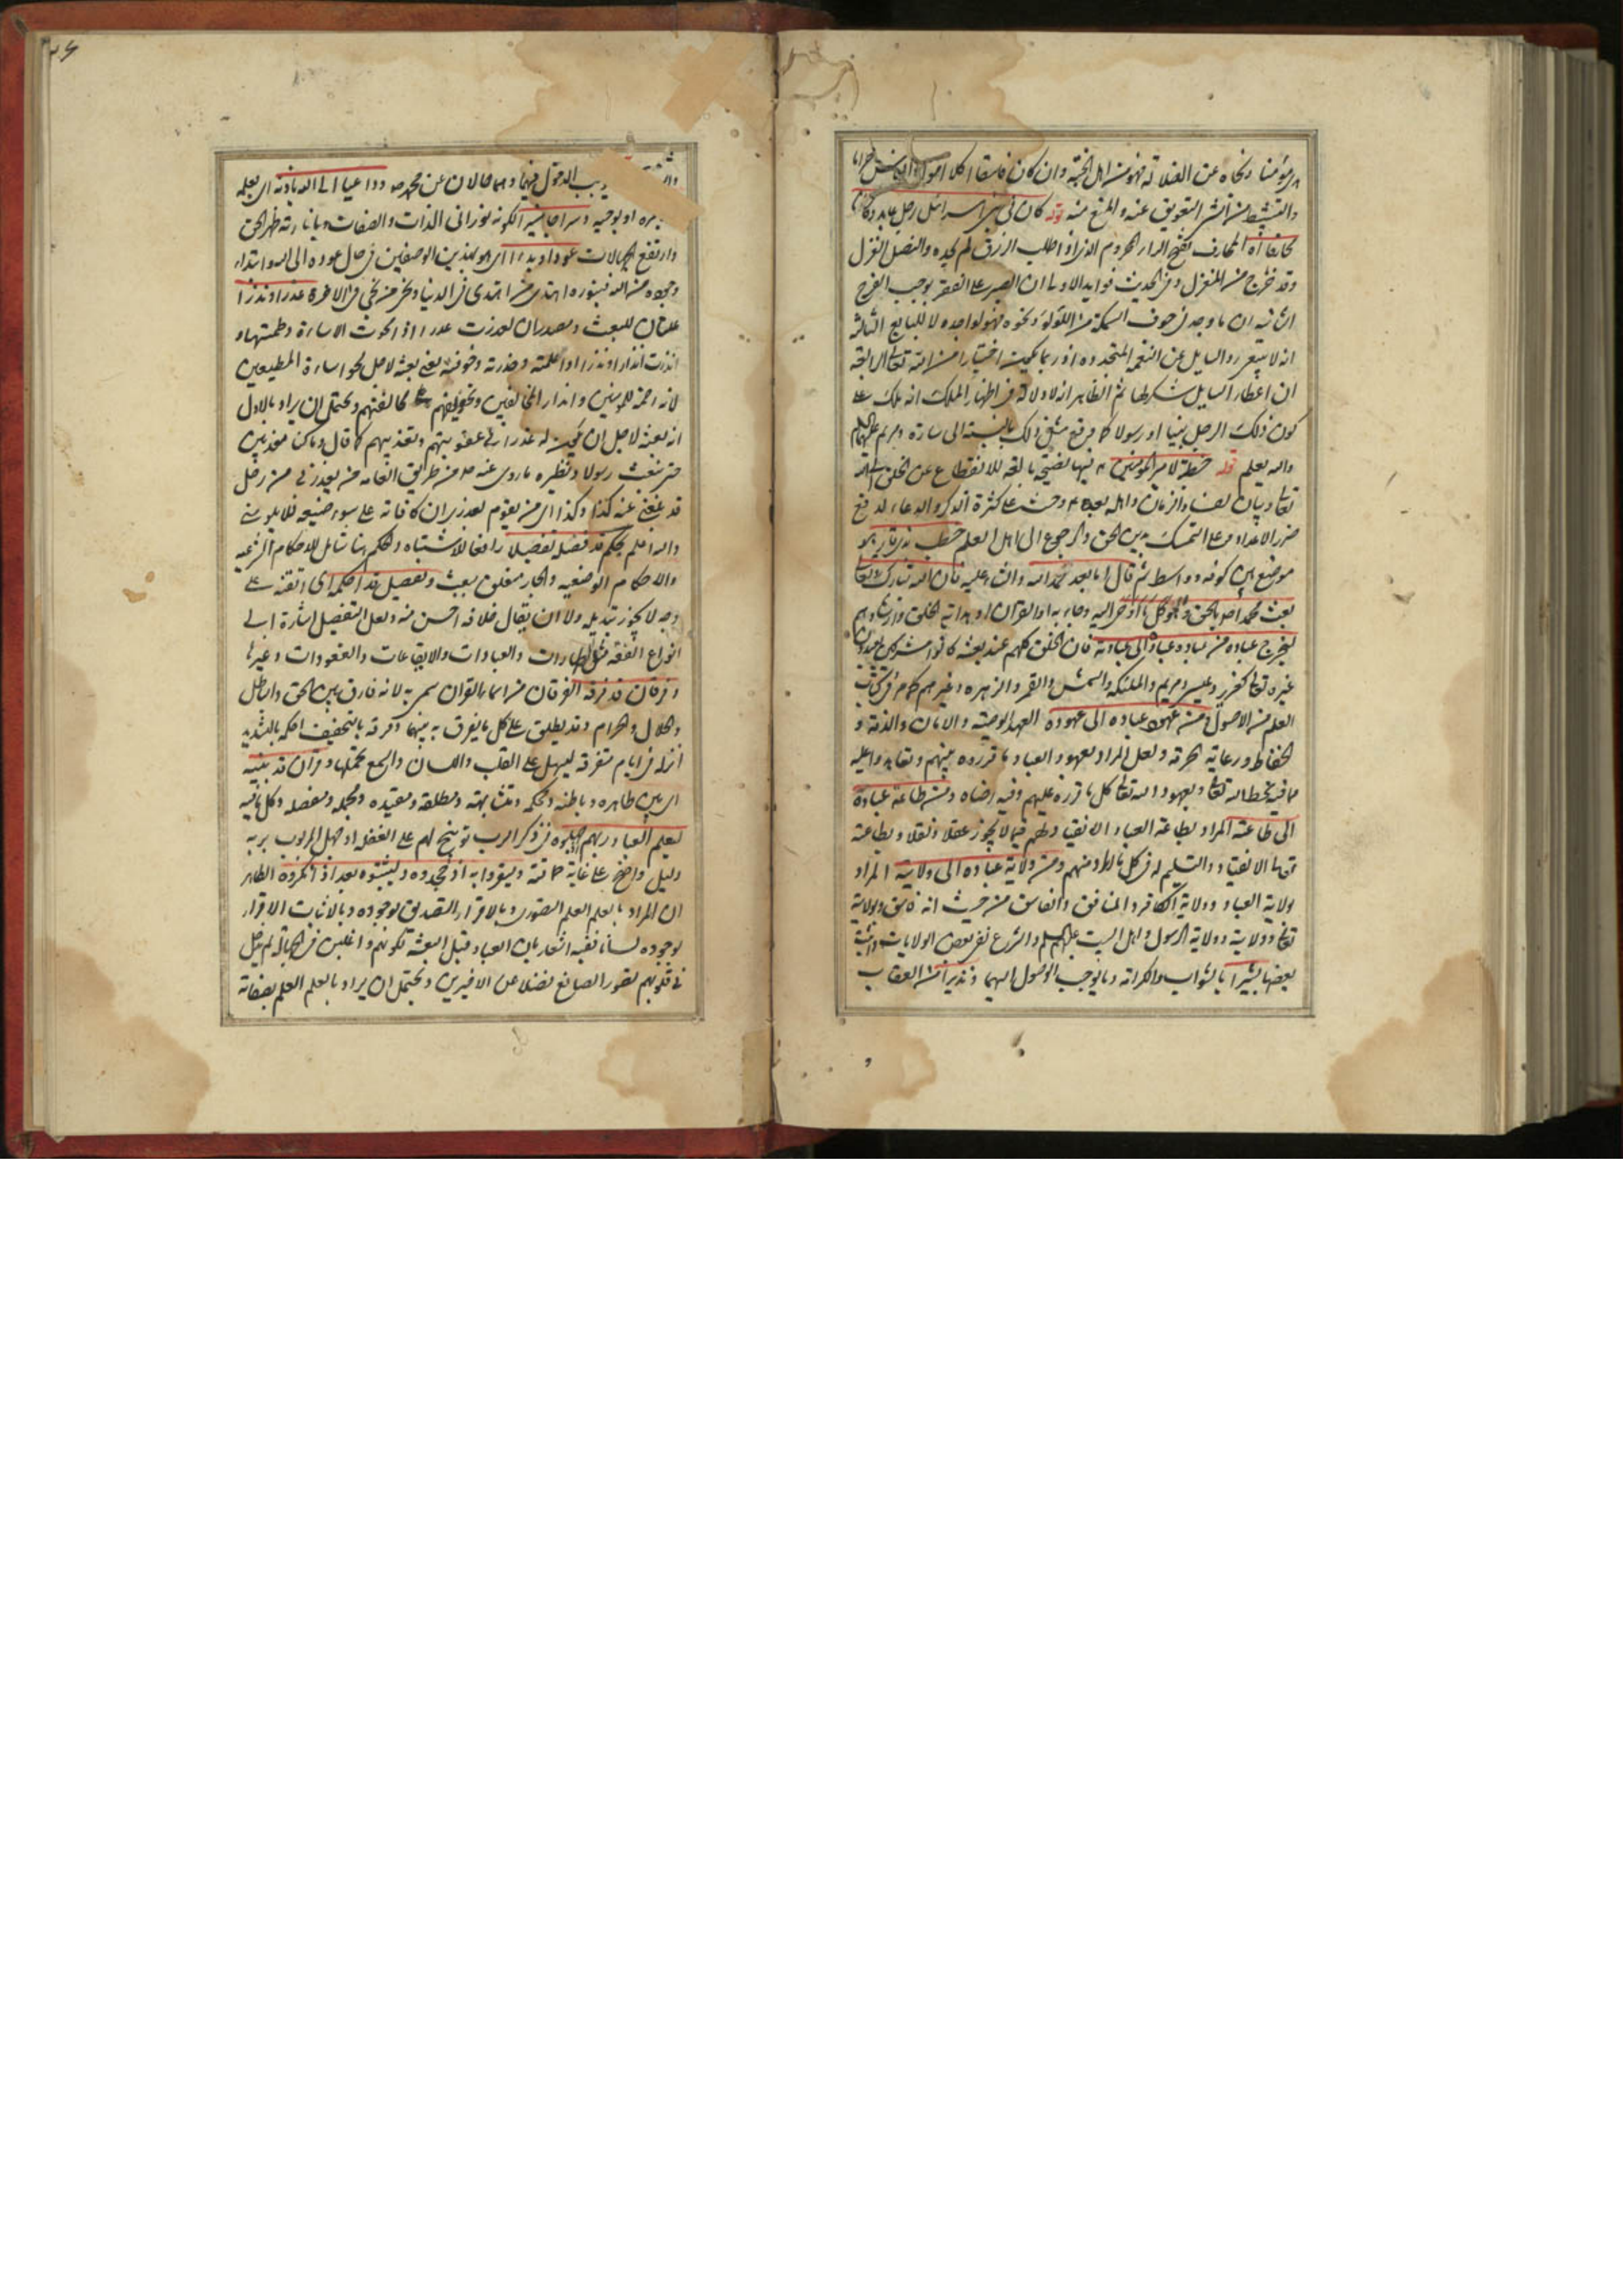 مؤمنا ونجاه عن الضلالة فهو من اهل الجنة وان كان فاسقا اكلا اموال الناس حراما
والتثبيط من الشر التعويق عنه والمنع منه قوله كان في بني اسرائيل رجل عابد وكان
محارفا اه المحارف بفتح الراء المحروم الذي اذا طلب الرزق لم يجده والنصل الغزل
وقد خرج من المغزل وفي الحديث فوايد الاولى ان الصبر على الفقر يوجب الفرج
الثانية ان ما وجد في جوف السمكة من اللؤلؤ ونحوه فهو لواجده لا للبايع الثالثة
انه لا ينبغي رد السايل عن النعمة المتجددة اذ ربما يكون اختبارا من الله تعالى الرابعة
ان اعطاء السايل شكر لها ثم الظاهر انه لا دلالة في اظهار الملك انه ملك على
كون ذلك الرجل نبيا او رسولا كما وقع مثل ذلك بالنسبة الى سارة ومريم عليهما السلام
والله يعلم قوله خطبة لامير المؤمنين ع فيها نصيحة بالغة للانقطاع عن الخلق الى الله
تعالى وبيان لفساد الزمان واهله بعده وحث على كثرة الذكر والدعاء لدفع
ضرر الاعداء وعلى التمسك بدين الحق والرجوع الى اهل العلم خطب بذي قار هو
موضع بين كوفة وواسط ثم قال اما بعد حمد الله والثناء عليه فان الله تبارك وتعالى
بعث محمدا ص بالحق
ليخرج عباده من عبادة عباده الى عبادته فان الخلق كلهم عند بعثه كانوا مشركين يعبدون
غيره تعالى كعزير وعيسى ومريم والملئكة والشمس والقمر والزهرة وغيرهم كما مر في كتاب
العلم من الاصول ومن عهود عباده الى عهوده العهد الوصية والامان والذمة و
الحفاظ ورعاية الحرمة ولعل المراد بعهود العباد ما قرروه بينهم وتعاهدوا عليه
مما فيه سخط الله تعالى وبعهود الله تعالى كل ما قرره عليهم وفيه رضاه ومن طاعة عباده
الى طاعته المراد بطاعة العباد الانقياد لهم فيما لا يجوز عقلا ونقلا وبطاعته
تعالى الانقياد والتسليم له في كل ما اراد منهم ومن ولاية عباده الى ولايته المراد
بولاية العباد ولاية الكافر والمنافق والفاسق من حيث انه فاسق وبولاية
تعالى ولايته وولاية الرسول واهل البيت عليهم السلم والشرع نفى بعض الولايات واثبت
بعضها بشيرا بالثواب والكرامة وما يوجب الوصول اليهما ونذيرا من العقاب
الدخول فيهما وهما حالان عن محمد ص وداعيا الى الله باذنه اى بعلمه
او بوحيه وسراجا منيرا لكونه نورانى الذات والصفات وبانارته ظهر الحق
وارتفع الجهالات عودا وبدءا اى هو بهذين الوصفين في حال عوده الى الله وابتداء
وجوده من الله فبنوره اهتدى من اهتدى في الدنيا وبه نجى من نجى في الاخرة عذرا او نذرا
علتان للبعث ومصدران لعذرت عذرا اذا محوت الاساءة وطمستها و
انذرت انذارا ونذرا اذا اعلمته وحذرته وخوفته يعنى بعثه لاجل محو اساءة المطيعين
لانه رحمة للمؤمنين وانذار المخالفين وتخويفهم على مخالفتهم ويحتمل ان يراد بالاول
انه بعثه لاجل ان يكون له عذرا في عقوبتهم وتعذيبهم كما قال وما كنا معذبين
حتى نبعث رسولا ونظيره ما روى عنه ص من طريق العامة من يعذرنى من رجل
قد بلغنى عنه كذا وكذا اى من يقوم بعذرى ان كافاته على سوء صنيعه فلا يلومنى
والله اعلم بحكم قد فصله تفصيلا رافعا للاشتباه والحكم هنا شامل للاحكام الشرعية
والاحكام الوضعية والجار متعلق ببعث وتفصيل قد احكمه اى اتقنه على
وجه لا يجوز تبديله ولا ان يقال خلافه احسن منه ولعل التفصيل اشارة الى
انواع الفقه مثل الطهارات والعبادات والايقاعات والعقودات وغيرها
وفرقان قد فرقه الفرقان من اسماء القران سمى به لانه فارق بين الحق والباطل
والحلال والحرام وقد يطلق على كل ما يفرق به بينهما وفرقه بالتخفيف احكمه بالتشديد
انزله في ايام متفرقة ليسهل على القلب واللسان والجمع محتمل وقران قد بينه
اى بين ظاهره وباطنه ومحكمه ومتشابهه ومطلقه ومقيده ومجمله ومفصله وكل ما فيه
ليعلم العباد ربهم اذ جهلوه في ذكر الرب توبيخ لهم على الغفلة اذ جهل المربوب بربه
دليل واضح على غاية حماقته وليقروا به اذ جحدوه وليثبتوه بعد اذ انكروه الظاهر
ان المراد بالعلم العلم التصورى وبالاقرار التصديق بوجوده وبالاثبات الاقرار
بوجوده لسانا ففيه اشعار بان العباد قبل البعثة لكونهم واغلين في الجهالة لم يدخل
في قلوبهم تصور الصانع فضلا عن الاخيرين ويحتمل ان يراد بالعلم العلم بصفاته